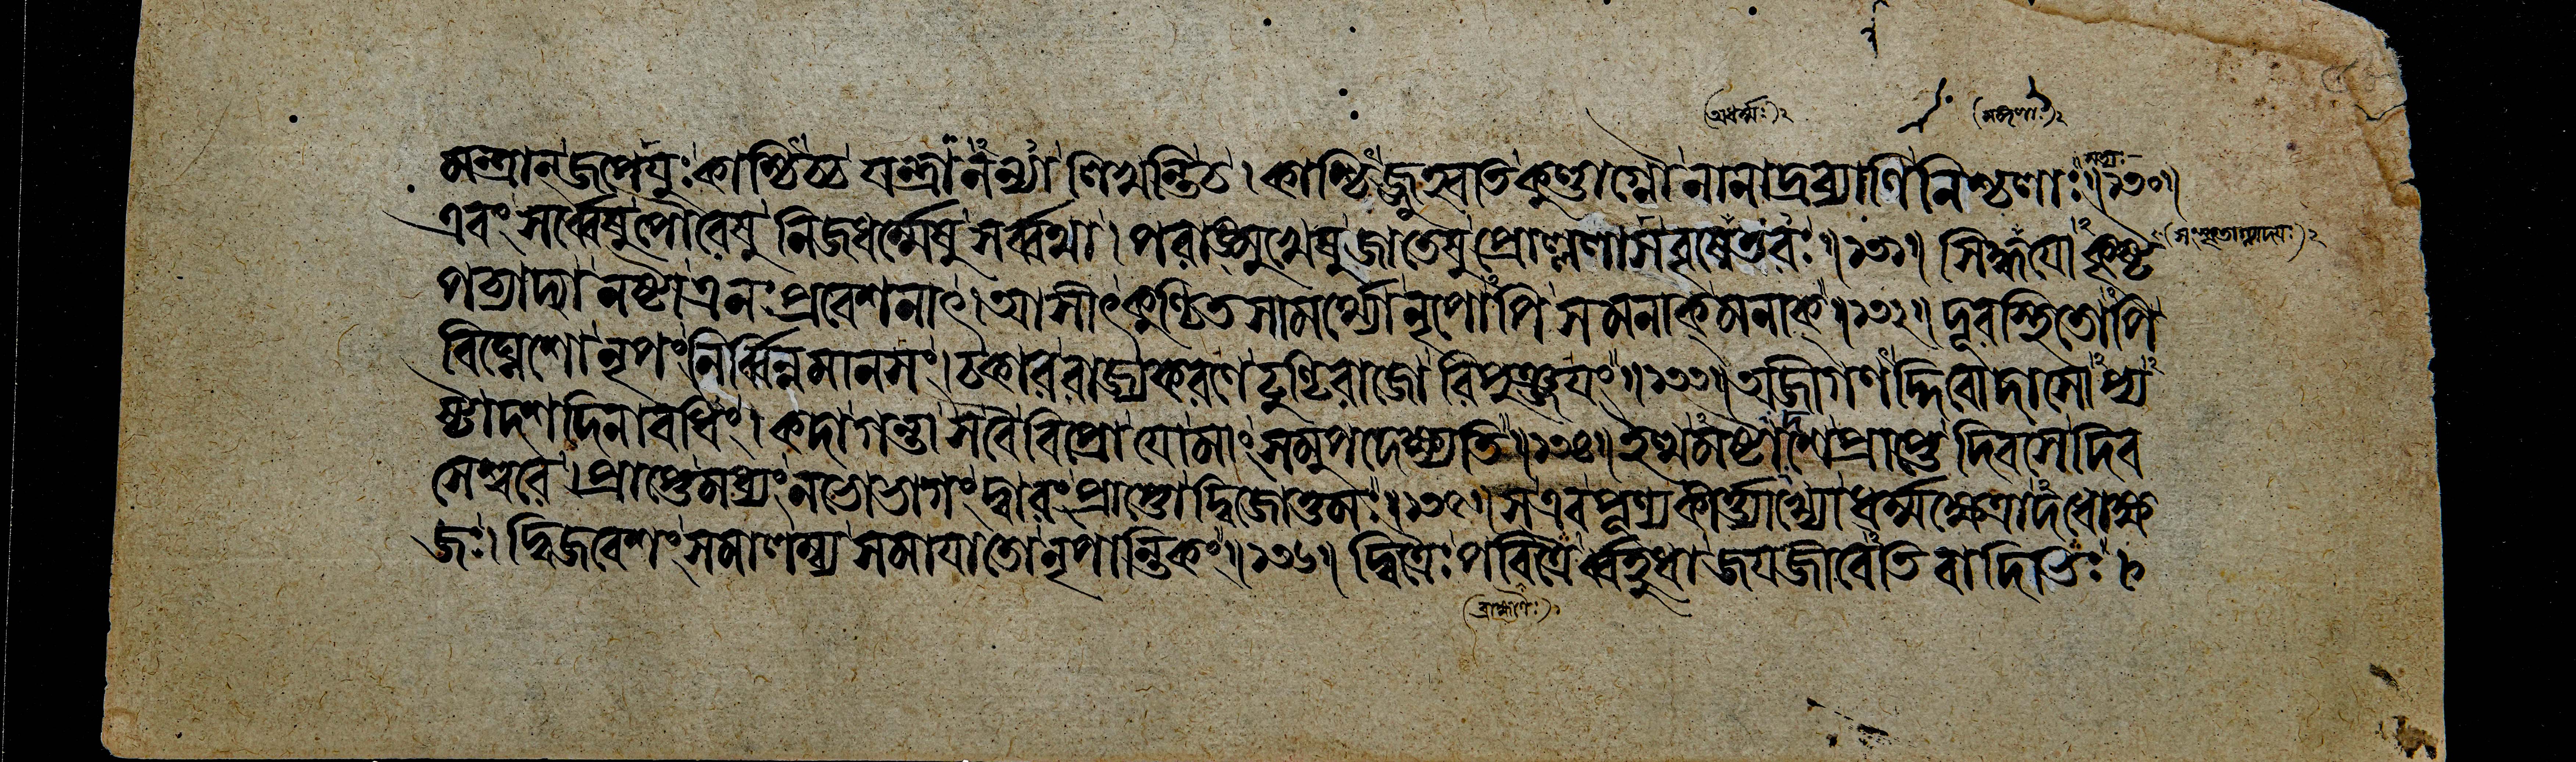 (অধর্ম্মঃ)২ (সল্লগ্ণাঃ)২
মন্ত্রান্ জপেযুঃ কাশ্চিচ্চ যন্ত্রানন্যা লিখন্তি চ। কাশ্চিজ্জুহ্বতি কুণ্ডাগ্নৌ নানাদ্রব্যাণি নিশ্চলাঃ॥১৩০॥
এবং সর্ব্বেষু পৌরেষু নিজধর্ম্মেষু সর্ব্বথা। পরাঙ্মুখেষু জাতেষু প্রোল্ললাস বৃষেতরঃ॥১৩১॥ সিদ্ধযোঽকৃষ্ট
পচ্যাদ্যা নষ্টা এনঃ প্রবেশনাৎ। আসীৎ কুণ্ঠিতসামর্থ্যো নৃপোঽপি স মনাক্ মনাক্॥১৩২॥ দূরস্থিতোঽপি
বিঘ্নেশো নৃপং নির্ব্বিন্নমানসং। চকার রাজ্যকরণে ঢুণ্ঢিরাজো রিপুঞ্জযং॥১৩৩॥ অজীগণদ্দিবোদাসোঽপ্য
ষ্টাদশদিনাবধিং। কদাগন্তা স বৈ বিপ্রো যো মাং সমুপদেক্ষ্যতি॥১৩৪॥ ইত্থমষ্টাদশে প্রাপ্তে দিবসে দিব
সেশ্বরে। প্রাপ্তে মধ্যং নভোভাগং দ্বারং প্রাপ্তো দ্বিজোত্তমঃ॥১৩৫॥ স এব পুণ্যকীর্ত্ত্যাখ্যো ধর্ম্মক্ষেত্রাদধোক্ষ
জঃ। দ্বিজবেশং সমালম্ব্য সমাযাতো নৃপান্তিকং॥১৩৬॥ দ্বিত্রৈঃ পবিত্রৈর্ব্বহুধা জযজীবেতি বাদিভিঃ।
(ব্রাহ্মণৈঃ)২